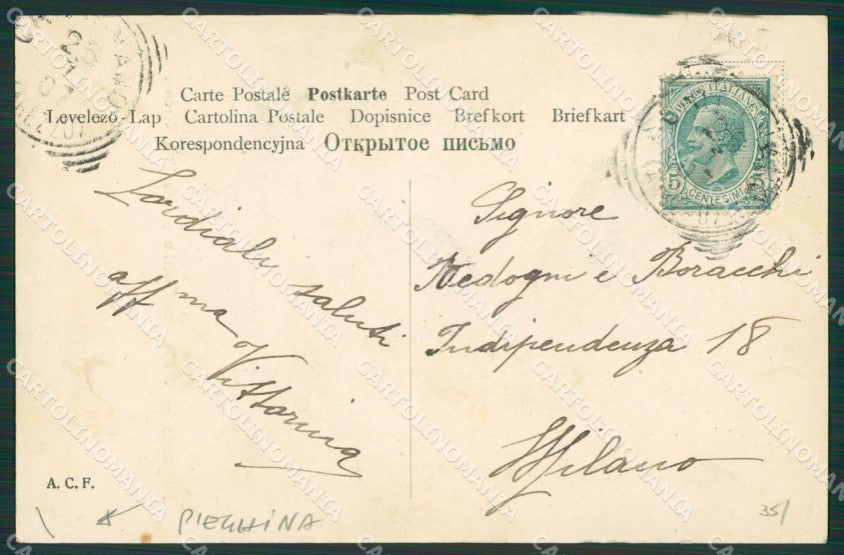 Carte Postale Postkarte Post Card
Levelező-Lap Cartolina Postale Dopisnice Brefkort Briefkart
Korespondencyjna Открытое письмо
Cordiali saluti
aff ma
Vittorina
Signore
Medogni e Boracchi
Indipendenza 18
Milano
POSTE ITALIANE
5
CENTESIMI
A. C. F.
PIEGHINA
35/
CARTOLINOMANIA